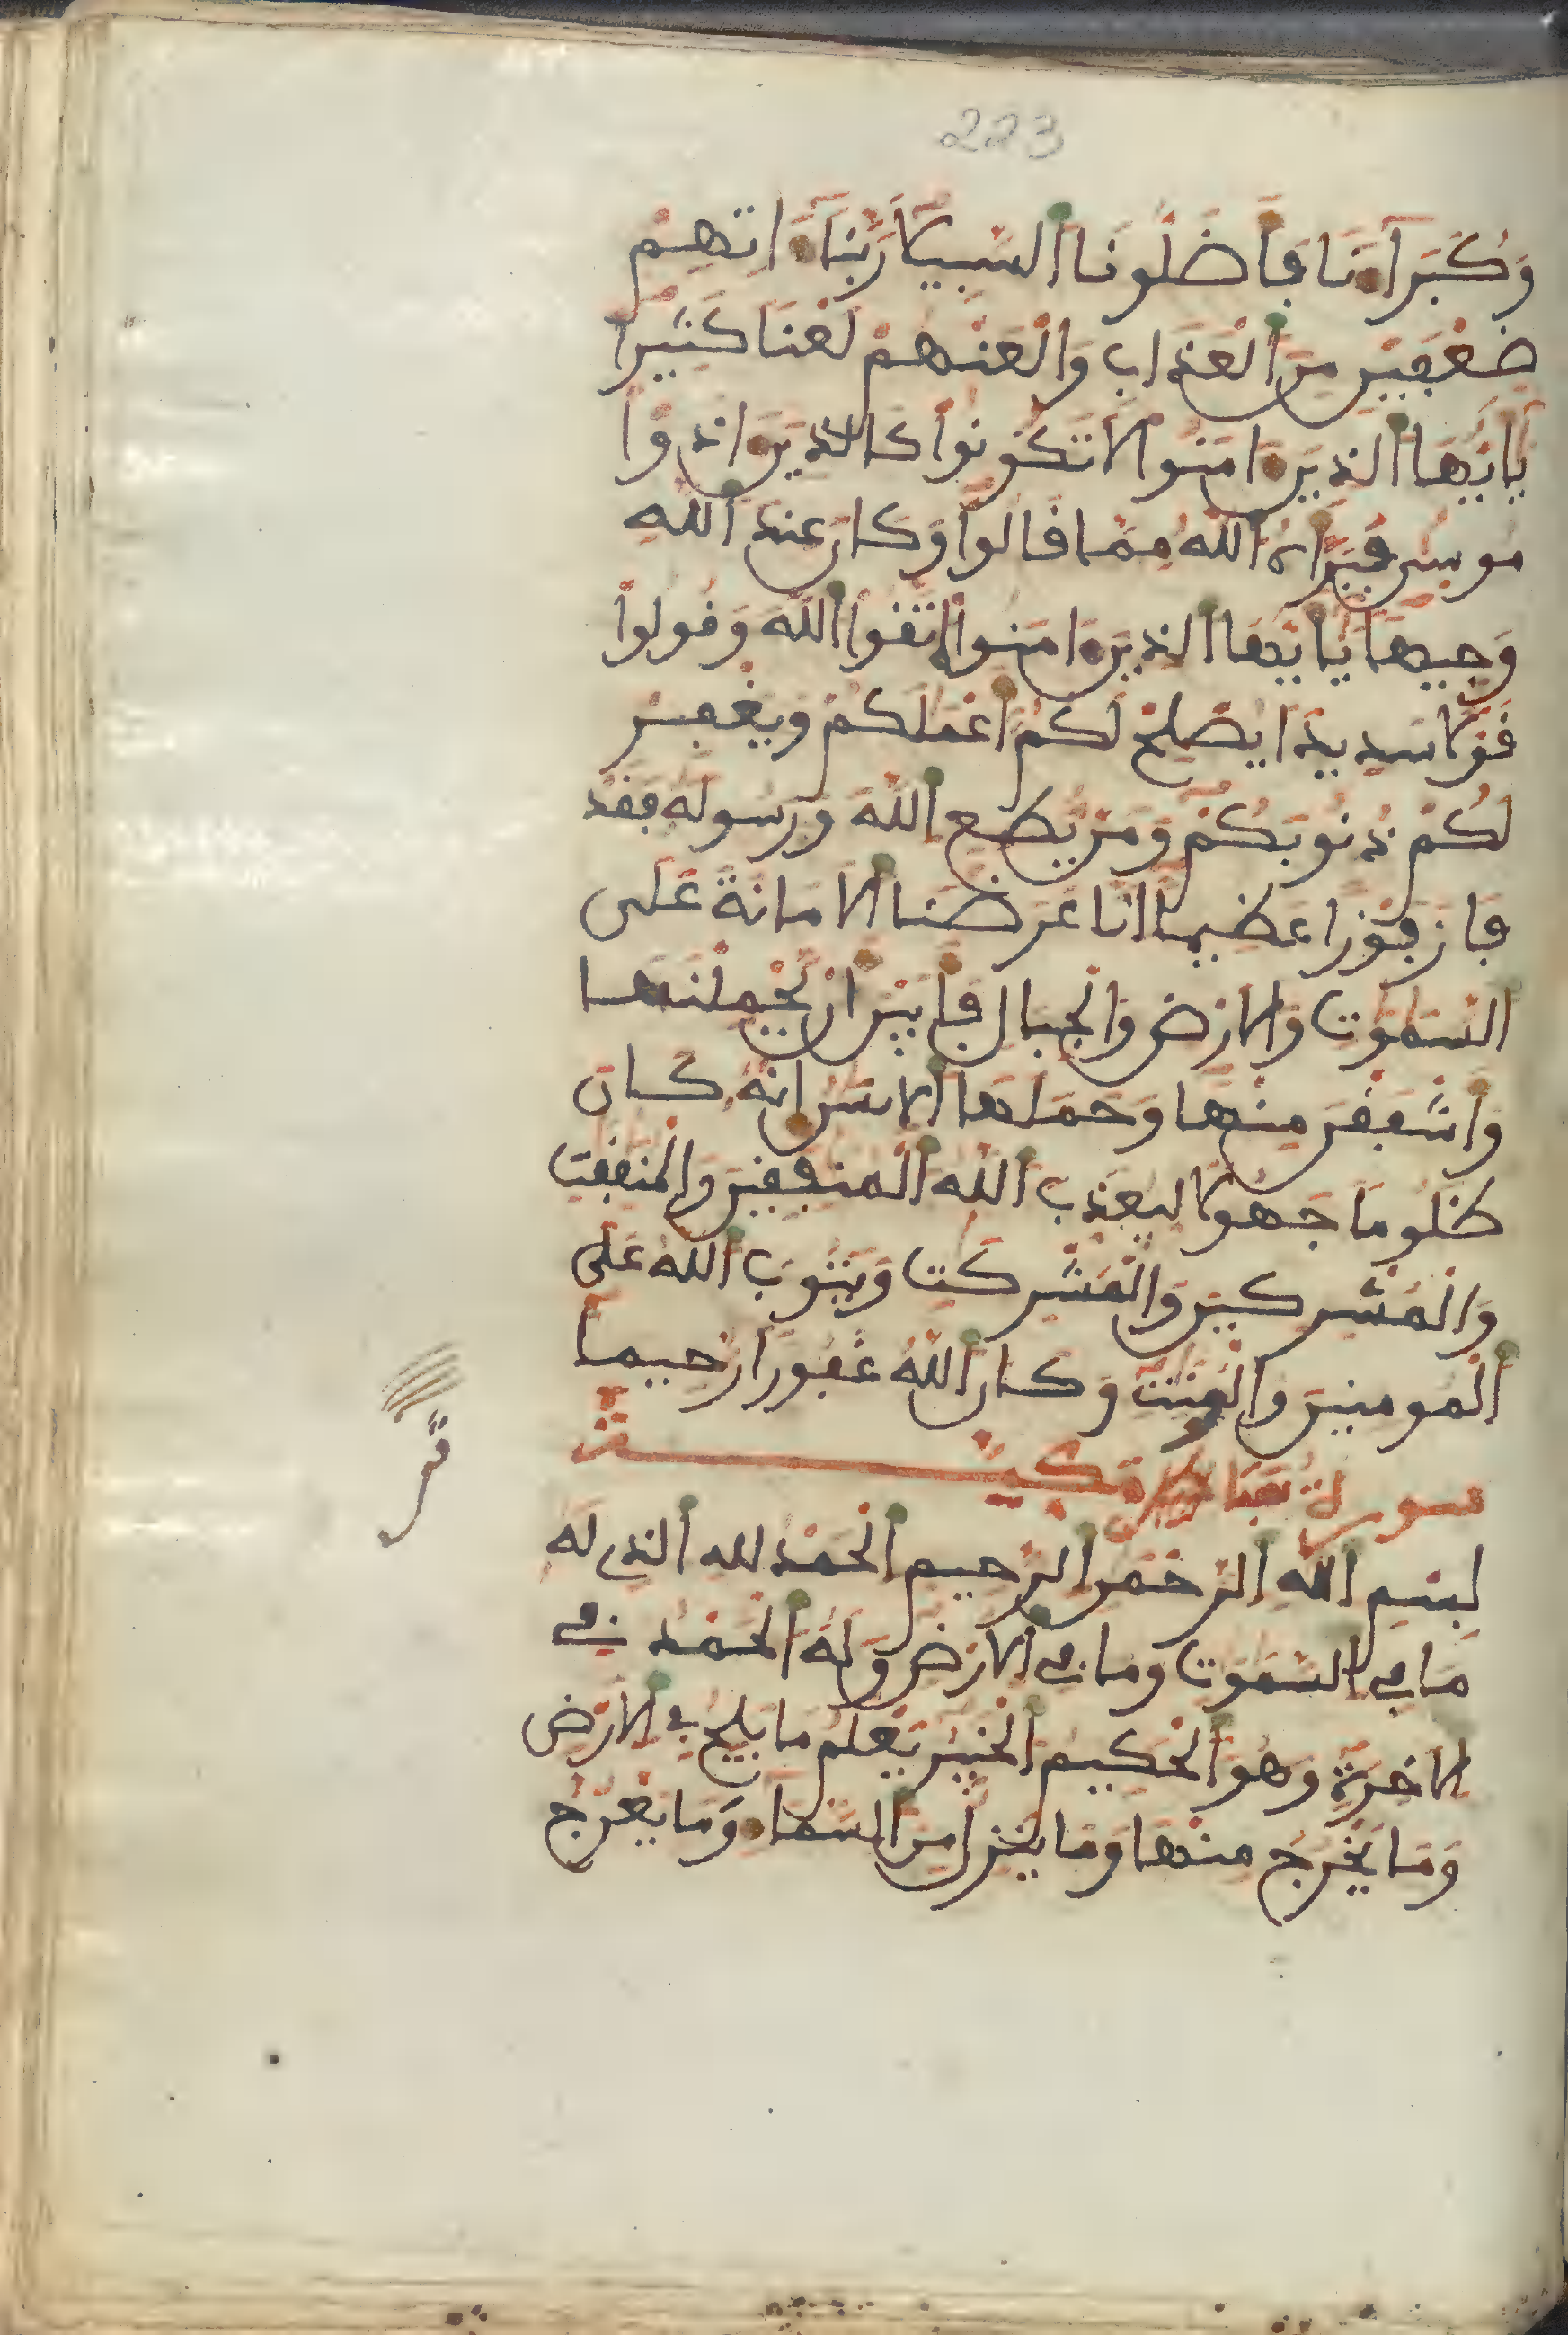 223
وَكُبَرَآءَنَا فَأَضَلُّونَا ٱلسَّبِيلَا رَبَّنَآ ءَاتِهِمْ
ضِعْفَيْنِ مِنَ ٱلْعَذَابِ وَٱلْعَنْهُمْ لَعْنًا كَثِيرًا
يَٰٓأَيُّهَا ٱلذِينَ ءَامَنُوا لَا تَكُونُوا كَالذِينَ ءَاذَوْا
مُوسىٰ فَبَرَّأَهُ ٱللَّهُ مِمَّا قَالُوا وَكَانَ عِندَ ٱللَّهِ
وَجِيهًا يَٰٓأَيُّهَا ٱلذِينَ ءَامَنُوا ٱتَّقُوا ٱللَّهَ وَقُولُوا
قَوْلًا سَدِيدًا يُصْلِحْ لَكُمْ أَعْمَٰلَكُمْ وَيَغْفِرْ
لَكُمْ ذُنُوبَكُمْ وَمَنْ يُطِعِ ٱللَّهَ وَرَسُولَهُ فَقَدْ
فَازَ فَوْزًا عَظِيمًا إِنَّا عَرَضْنَا ٱلَامَانَةَ عَلَى
ٱلسَّمَٰوَٰتِ وَٱلَارْضِ وَٱلْجِبَالِ فَأَبَيْنَ أَنْ يَحْمِلْنَهَا
وَأَشْفَقْنَ مِنْهَا وَحَمَلَهَا ٱلِانسَٰنُ إِنَّهُ كَانَ
ظَلُومًا جَهُولًا لِيُعَذِّبَ ٱللَّهُ ٱلْمُنَٰفِقِينَ وَٱلْمُنَٰفِقَٰتِ
وَٱلْمُشْرِكِينَ وَٱلْمُشْرِكَٰتِ وَيَتُوبَ ٱللَّهُ عَلَى
ٱلْمُومِنِينَ وَٱلْمُومِنَٰتِ وَكَانَ ٱللَّهُ غَفُورًا رَحِيمًا
بِسْمِ ٱللَّهِ ٱلرَّحْمَٰنِ ٱلرَّحِيمِ ٱلْحَمْدُ لِلهِ ٱلذِى لَهُ
مَا فِى ٱلسَّمَٰوَٰتِ وَمَا فِى ٱلَارْضِ وَلَهُ ٱلْحَمْدُ فِى
ٱلَاخِرَةِ وَهُوَ ٱلْحَكِيمُ ٱلْخَبِيرُ يَعْلَمُ مَا يَلِجُ فِى ٱلَارْضِ
وَمَا يَخْرُجُ مِنْهَا وَمَا يَنزِلُ مِنَ ٱلسَّمَآءِ وَمَا يَعْرُجُ